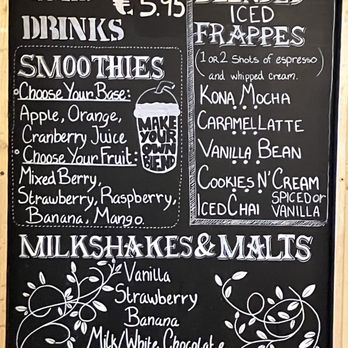 € 5.95
DRINKS
SMOOTHIES
Choose Your Base:
Apple, Orange,
Cranberry Juice
Choose Your Fruit:
Mixed Berry,
Strawberry, Raspberry,
Banana, Mango.
MAKE
YOUR
OWN
BLEND
BLENDED
ICED
FRAPPES
(1 OR 2 Shots of espresso
and whipped cream.
KONA MOCHA
CARAMEL LATTE
VANILLA BEAN
COOKIES N' CREAM
ICED CHAI SPICED OR
VANILLA
MILKSHAKES & MALTS
Vanilla
Strawberry
Banana
Milk/White Chocolate